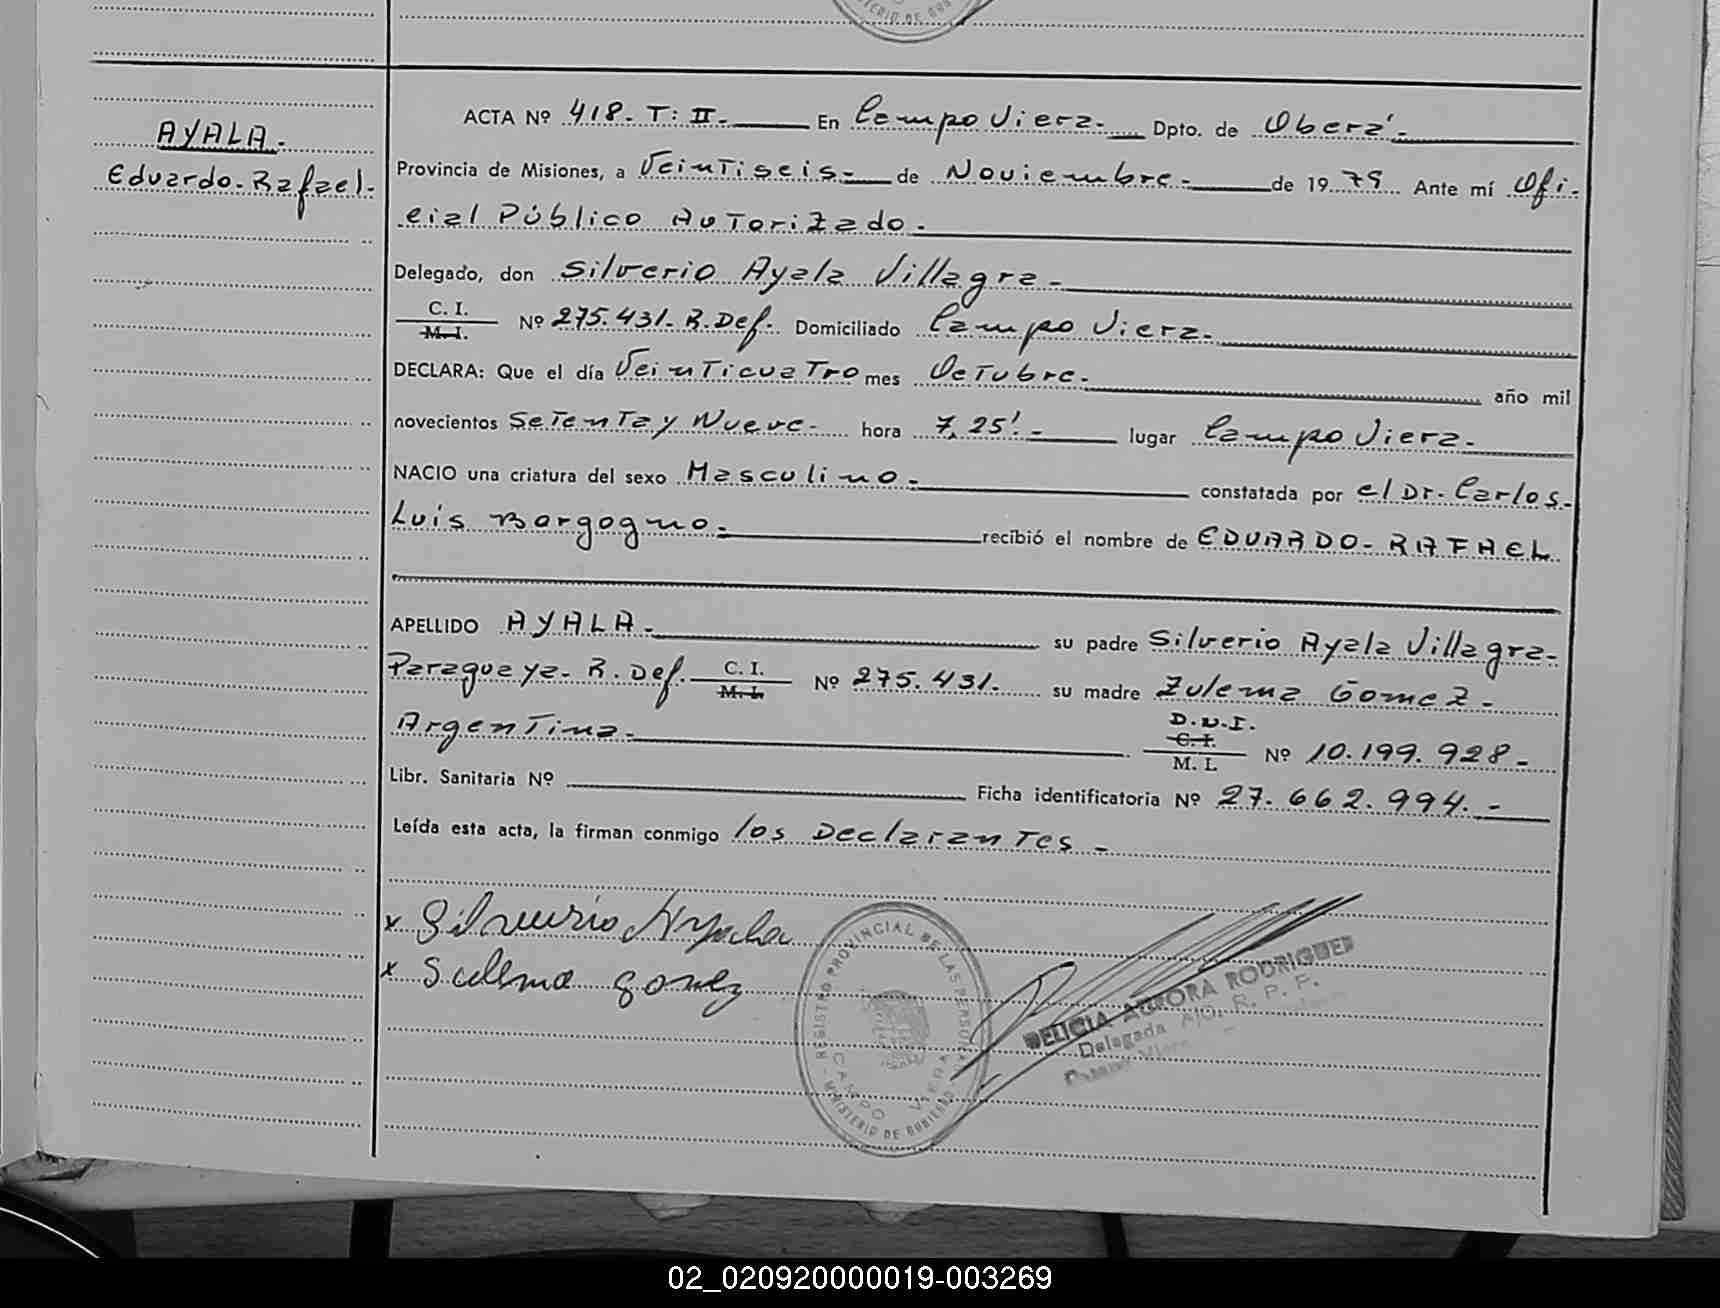 ERIO DE GOB
AYALA.-
Eduardo-Rafael.-
ACTA Nº 418. T: II.- En Campo Viera.- Dpto. de Oberá.-
Provincia de Misiones, a Veintiseis.- de Noviembre.- de 1979 Ante mí Ofi-
cial Público Autorizado.-
Delegado, don Silverio Ayala Villagra.-
C. I.
M. I. Nº 275.431. R. Def. Domiciliado Campo Viera.-
DECLARA: Que el día Veinticuatro mes Octubre.- año mil
novecientos Setenta y Nueve.- hora 7,25'.- lugar Campo Viera.-
NACIO una criatura del sexo Masculino.- constatada por el Dr. Carlos-
Luis Borgogno.- recibió el nombre de EDUARDO-RAFAEL.
APELLIDO AYALA.- su padre Silverio Ayala Villagra-
Paraguaya. R. Def. C. I.
M. I. Nº 275.431. su madre Zulema Gomez.-
Argentina.- D.N.I.
C. I.
M. I. Nº 10.199.928-
Libr. Sanitaria Nº Ficha identificatoria Nº 27.662.994.-
Leída esta acta, la firman conmigo los Declarantes.-
x Silverio Ayala
x Sulema gomez
REGISTRO PROVINCIAL DE LAS PERSONAS
CAMPO VIERA
MINISTERIO DE GOBIERNO
DELICIA AURORA RODRIGUEZ
Delegada A/O. R. P. P.
Campo Viera
02_020920000019-003269